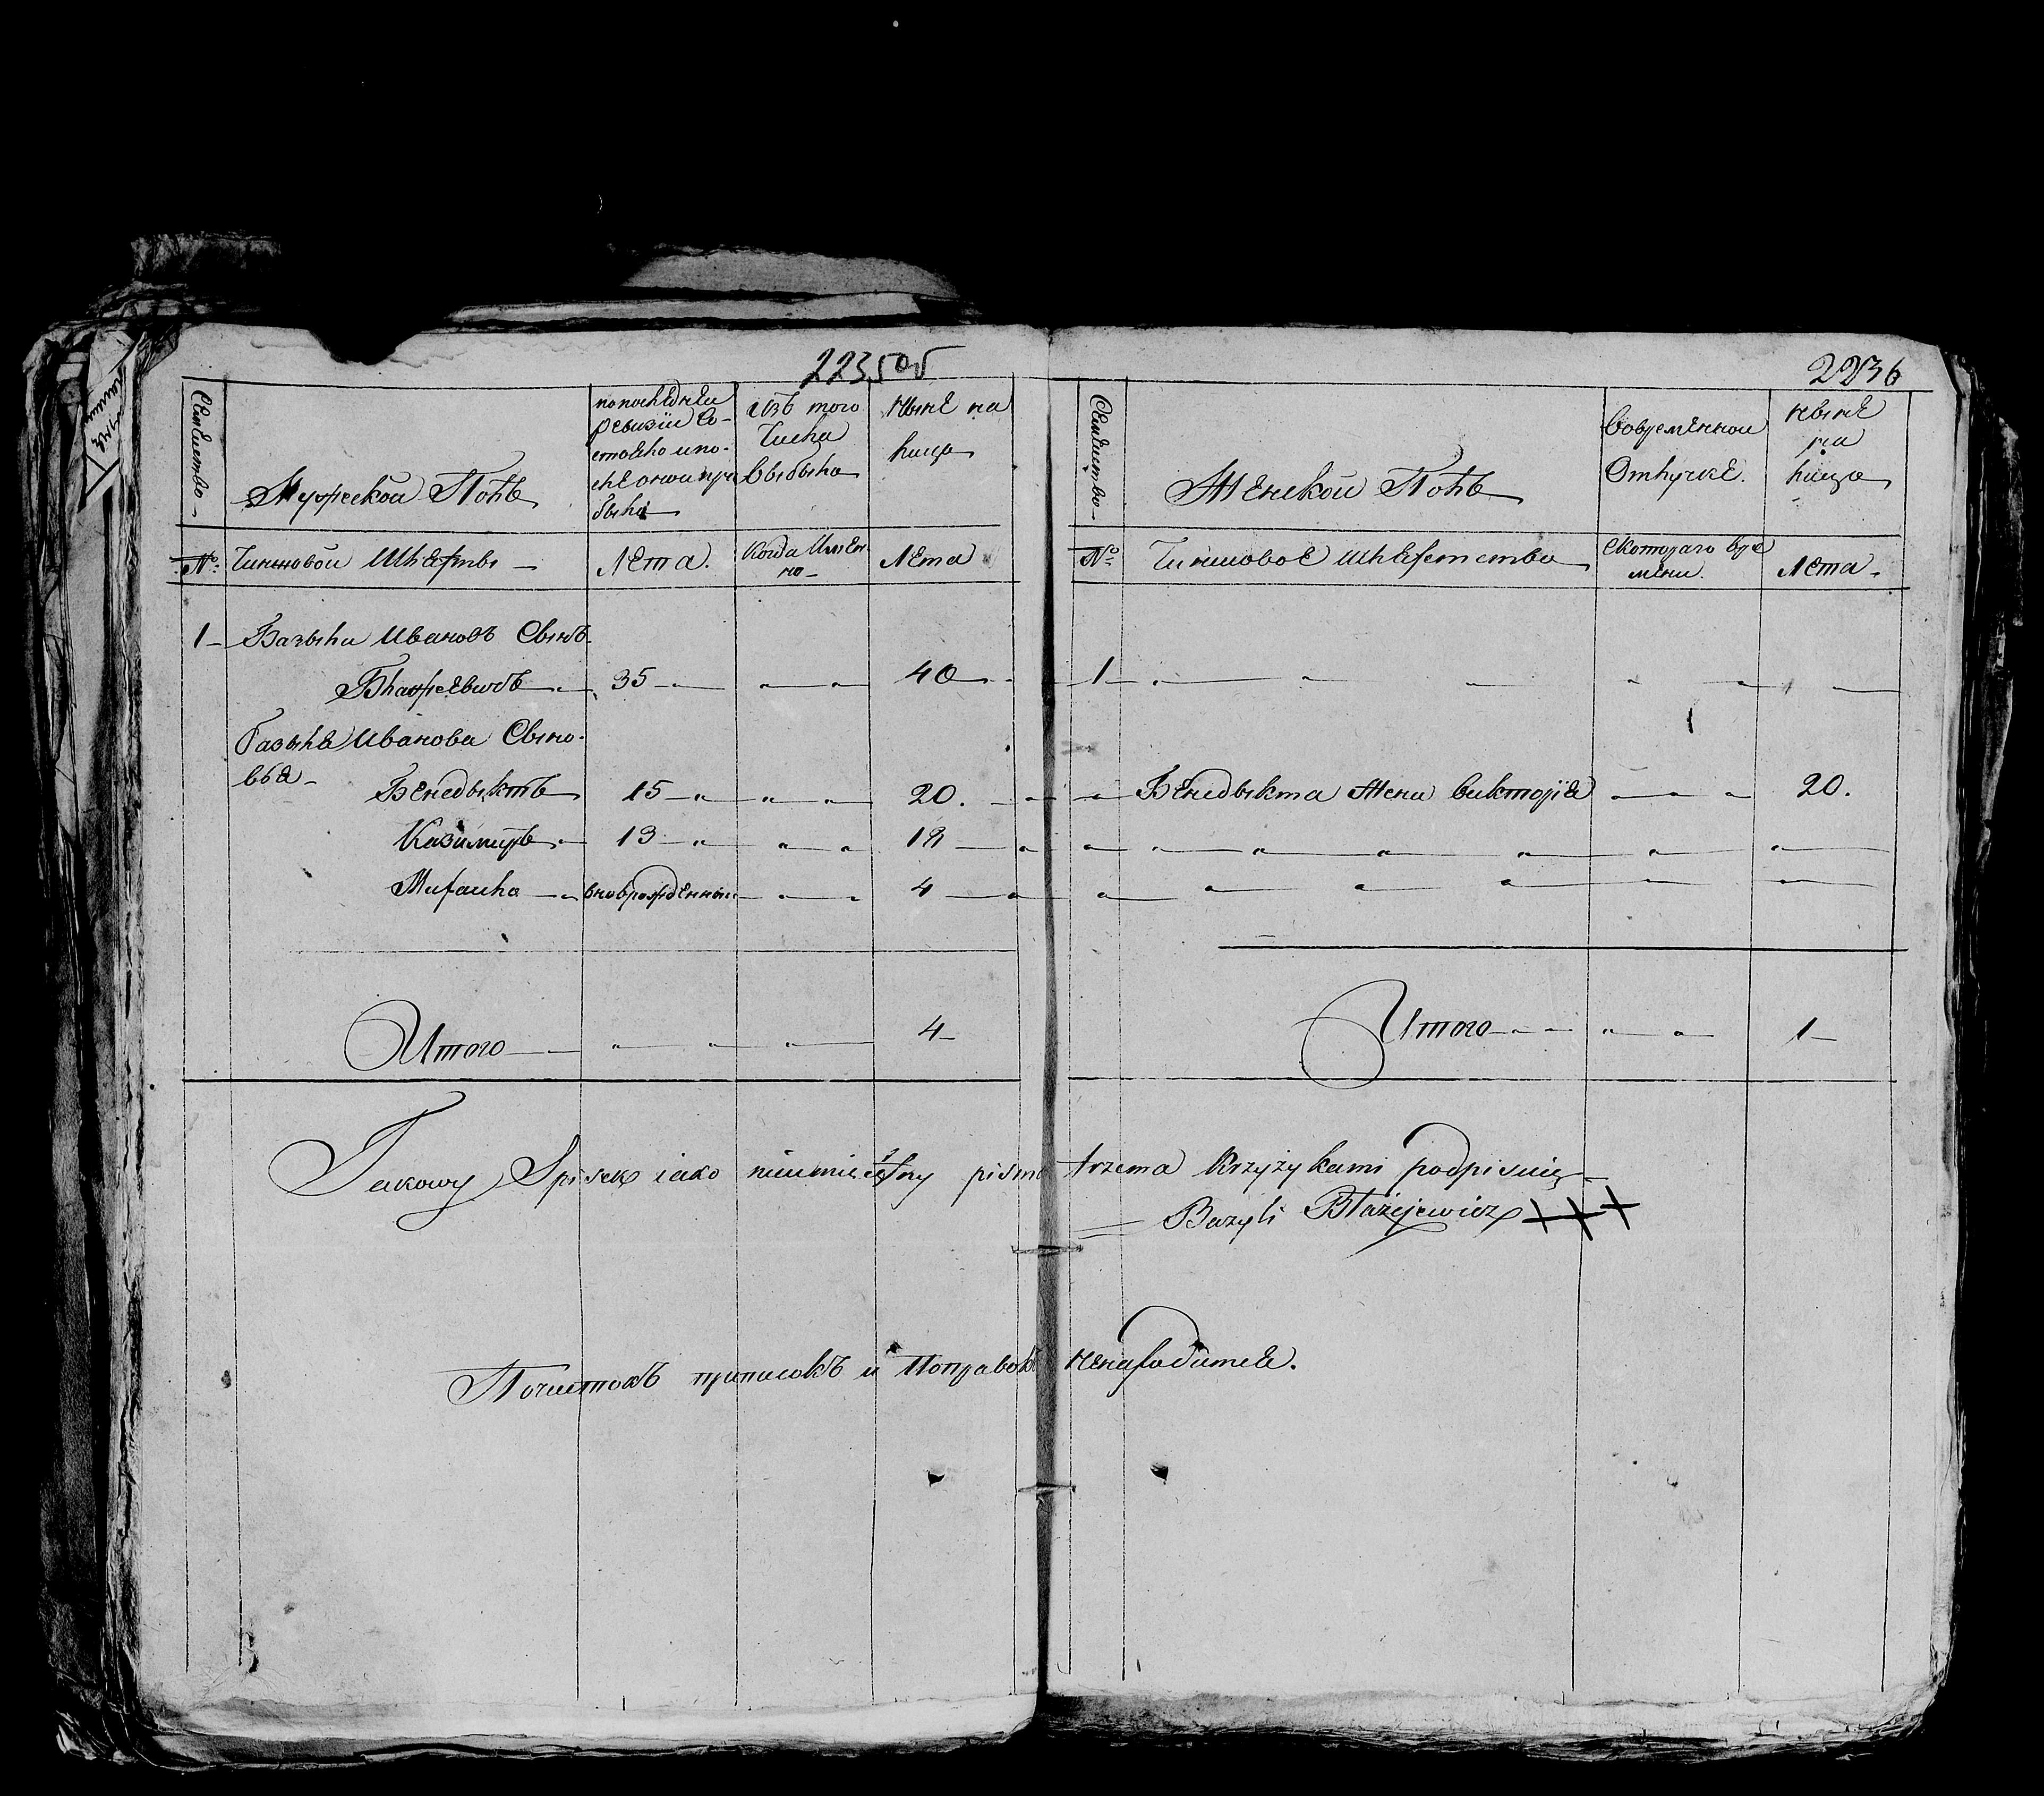 2235об
Семейство
Мужескои Полъ
попоследнеи
ревизіи Со-
стояло ипо-
сле онои при
было
изъ того
Числа
выбыло
Ныне на
лицо
№:
Чиншовои Шляхты
Лета.
Когда Имен-
но
Лета
1 Базыли Ивановъ Сынъ
Блажеевичъ 35 40
базыля Иванова Сыно-
вья
Бенедыктъ 15 20.
Казимиръ 13 18
Михаила вноврожденныи 4
Итого 4
2236
Семейство
Женскои Полъ
вовременнои
Отлучке.
ныне
на
лицо
№
Чиншовое шляхетство
скотораго вре
мени.
Лета.
1
Бенедыкта Жена викторія 20.
Итого 1
Takowy Spisek iako nieumieiętny pisma trzema krzyżykami podpisuię
Bazyli Błażejewicz +++
Почистокъ приписокъ и Поправокъ ненаходится.